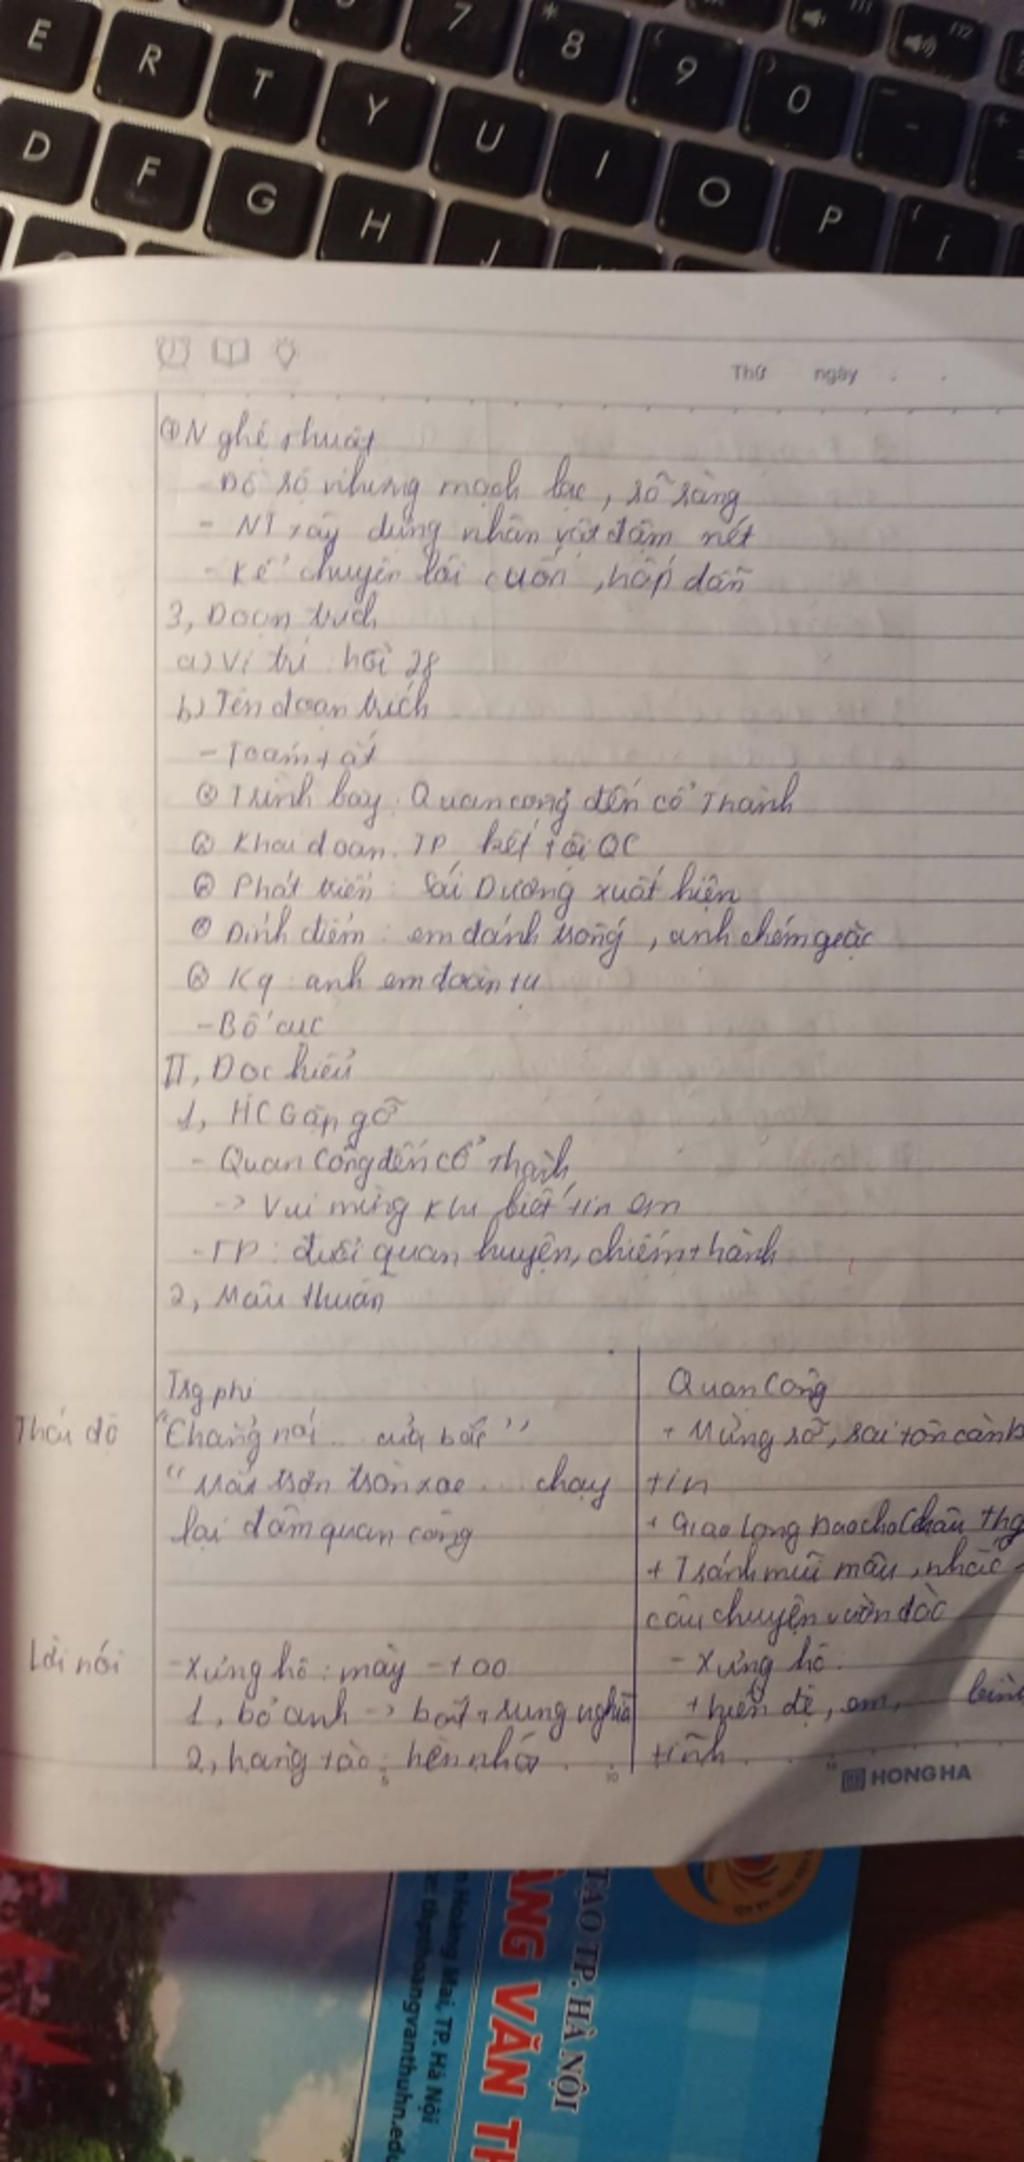 E R T Y U I O P [
7 8 9 0 -
D F G H J
Thứ ngày
⊕ Nghệ thuật
- Đồ sộ nhưng mạch lạc, rõ ràng
- NT xây dựng nhân vật đậm nét
- Kể chuyện lôi cuốn, hấp dẫn
3, Đoạn trích
a) Vị trí: hồi 28
b) Tên đoạn trích
- Toám tắt
⊗ Trình bày: Quan công đến cổ Thành
⊗ Khai đoạn: TP kết tội QC
⊗ Phát triển: Sái Dương xuất hiện
⊗ Đỉnh điểm: em đánh trống, anh chém giặc
⊗ Kq: anh em đoàn tụ
- Bố cục
II, Đọc hiểu
1, HC Gặp gỡ
- Quan Công đến cổ Thành
-> Vui mừng khi biết tin em
- TP: đuổi quan huyện, chiếm thành
2, Mâu thuẫn
Trg phi Quan Công
Thái độ "Chẳng nói ... cửa bắc" + Mừng rỡ, sai tôn càn
"Mắt trợn tròn xoe ... chạy tin
lại đâm quan công + Giao long đao cho Châu Thg
+ Tránh mũi mâu, nhắc
câu chuyện vườn đào
Lời nói - Xưng hô: mày - tao - Xưng hô:
1, bỏ anh -> bất trung nghĩa + hiền đệ, em,
2, hàng tào: hèn nhát tĩnh
HONG HA
Hoàng Mai, TP. Hà Nội
thpthoangvanthuhn.edu
ÀNG VĂN TH
TẠO TP. HÀ NỘI